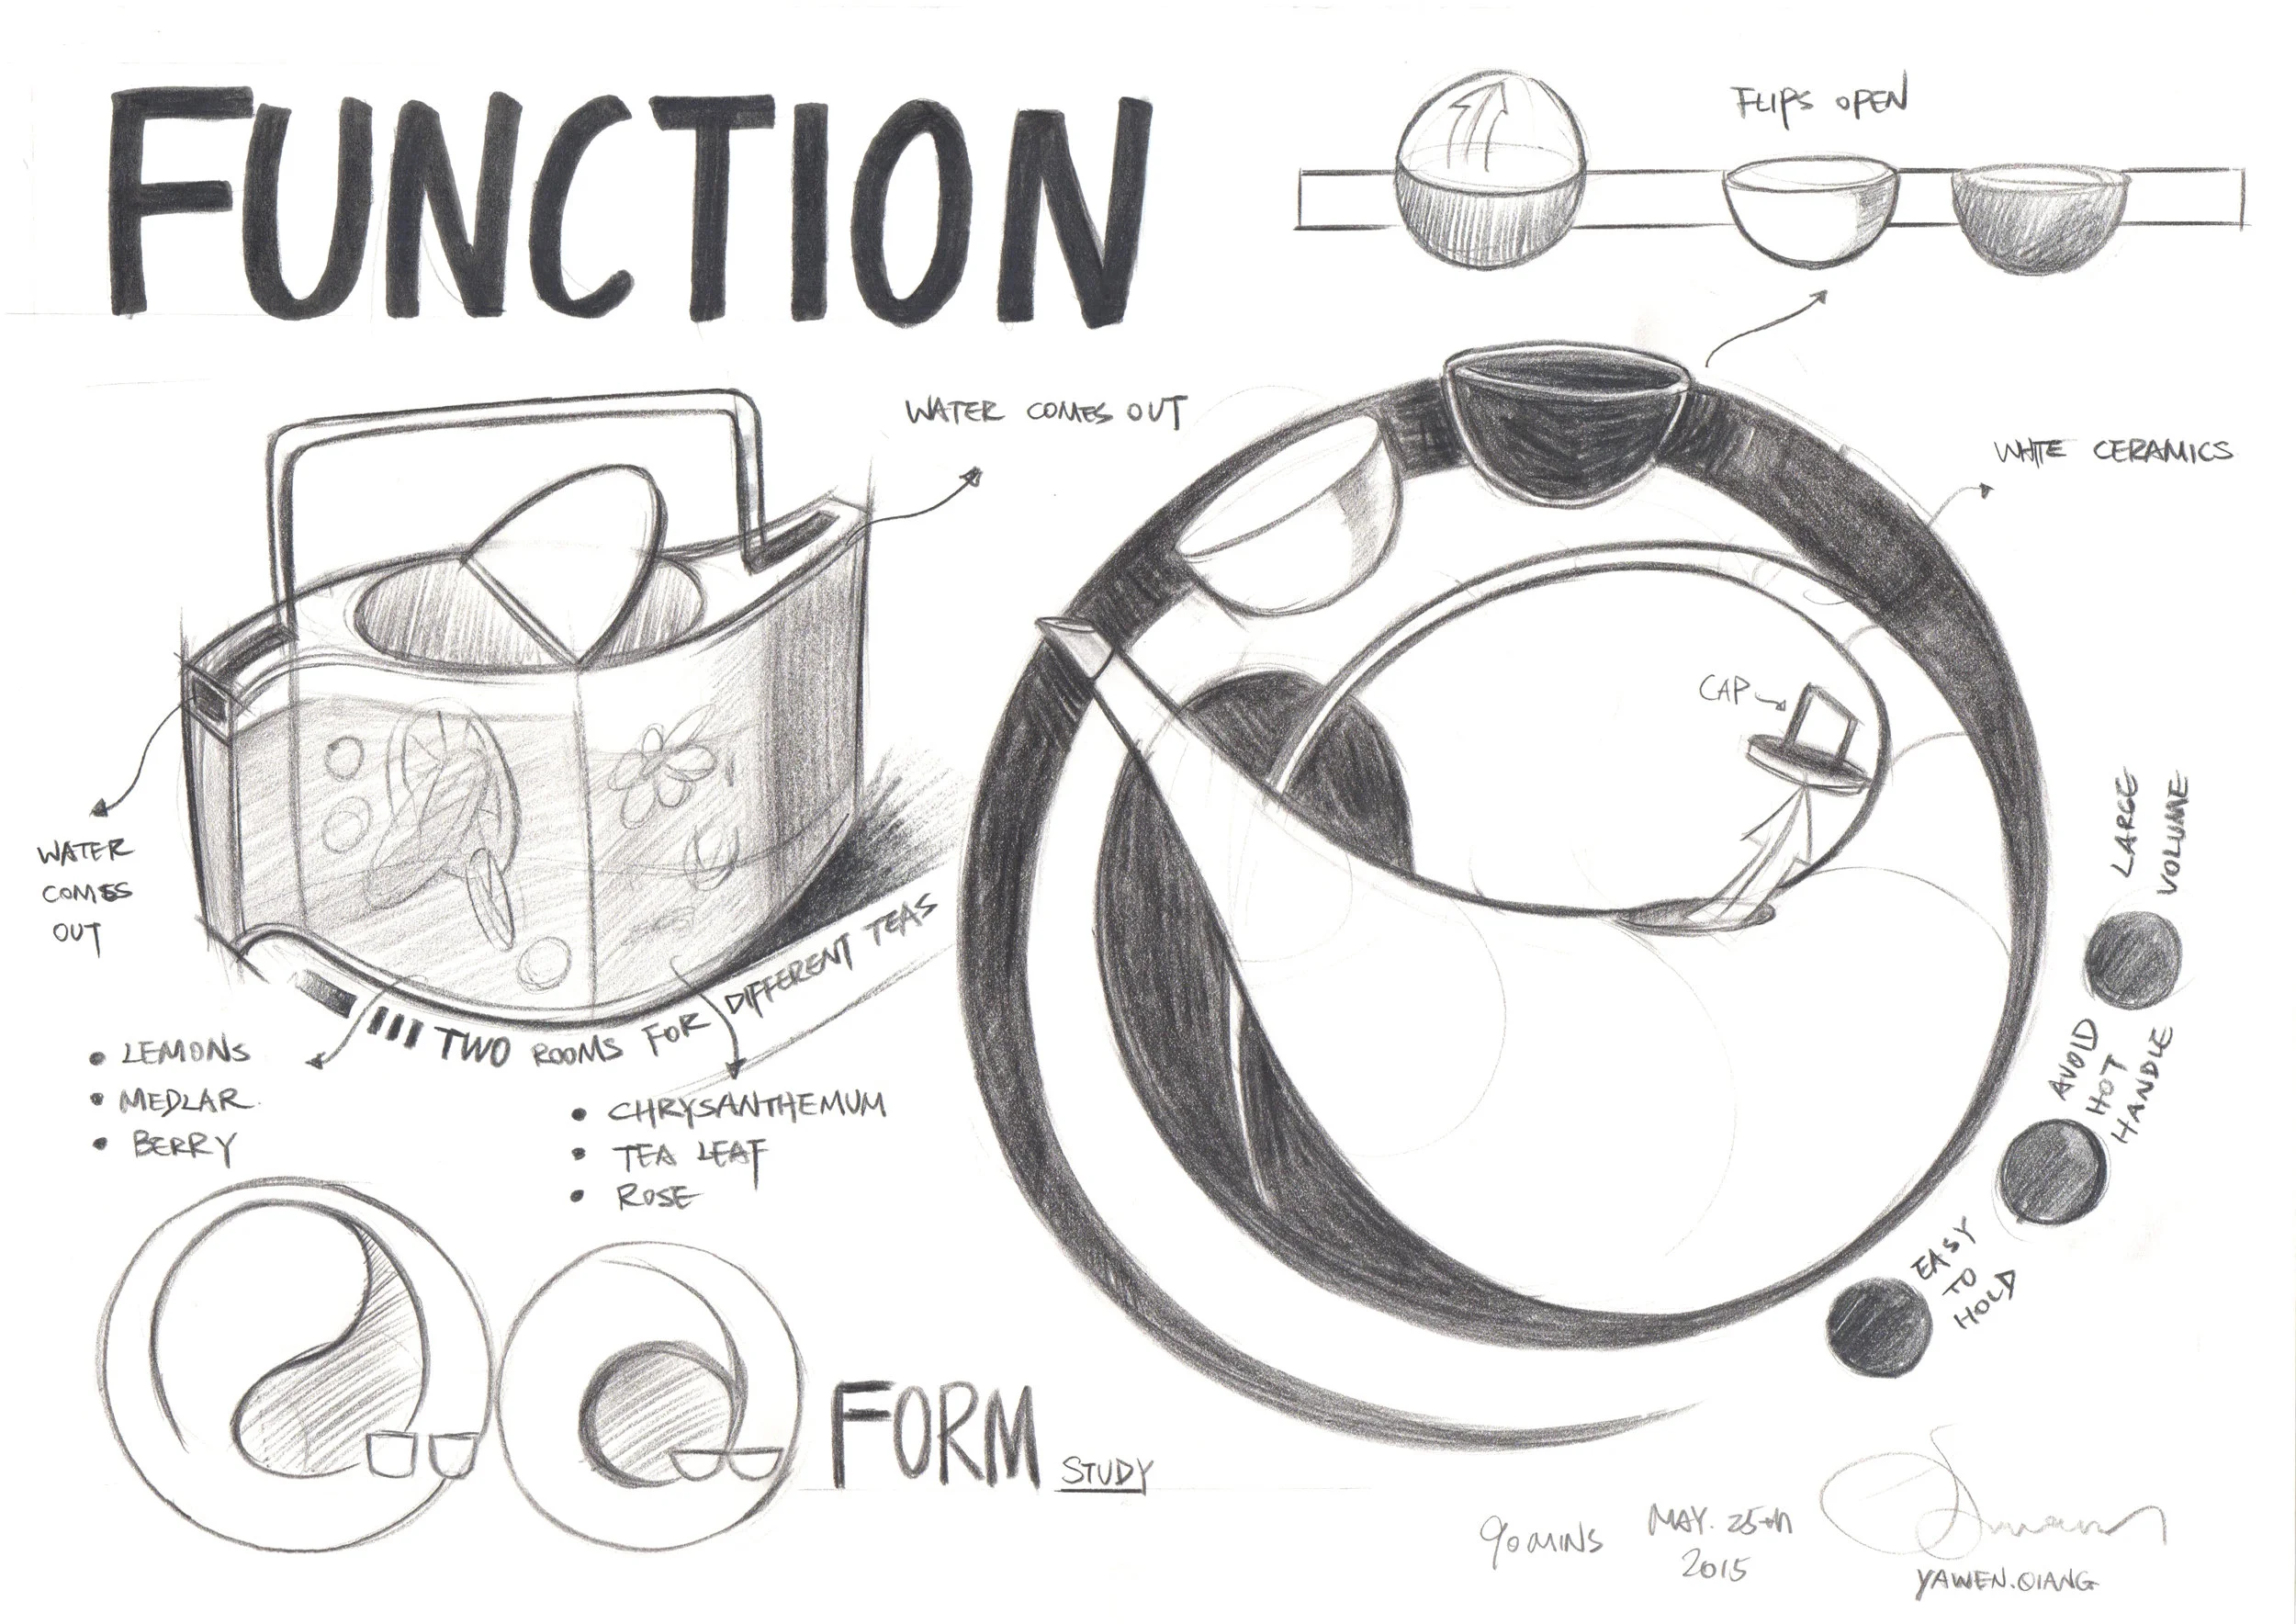 FUNCTION
FLIPS OPEN
WATER COMES OUT
WHITE CERAMICS
CAP
LARGE
VOLUME
WATER
COMES
OUT
AVOID
HOT
HANDLE
TWO ROOMS FOR DIFFERENT TEAS
• LEMONS
• MEDLAR
• BERRY
• CHRYSANTHEMUM
• TEA LEAF
• ROSE
EASY
TO
HOLD
FORM STUDY
90 MINS
MAY. 25th
2015
YAWEN.QIANG